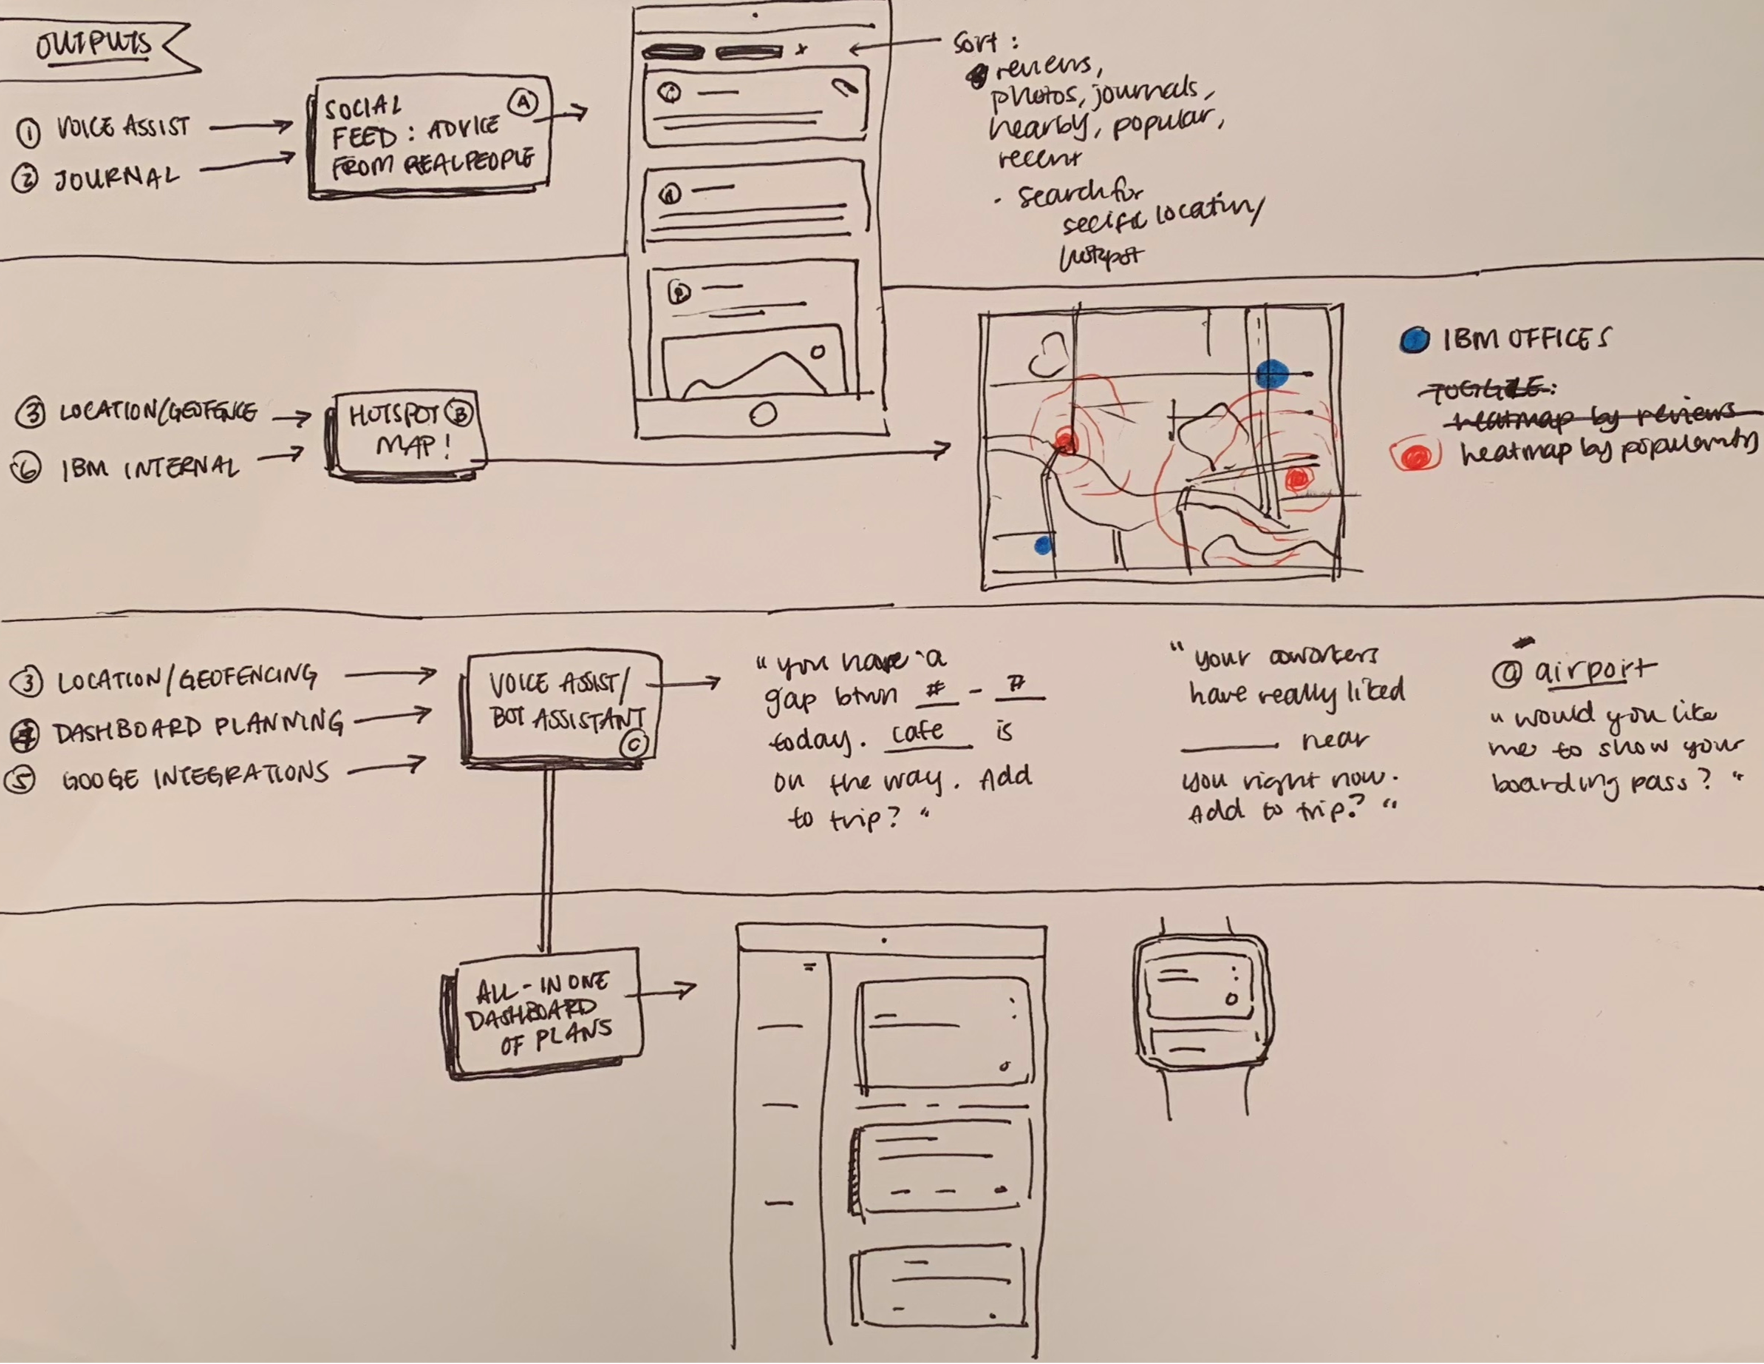 OUTPUTS
① VOICE ASSIST
② JOURNAL
SOCIAL Ⓐ
FEED: ADVICE
FROM REAL PEOPLE
Sort:
reviews,
photos, journals,
nearby, popular,
recent
· search for
secific location/
hotspot
③ LOCATION/GEOFENCE
⑥ IBM INTERNAL
HOTSPOT Ⓑ
MAP!
IBM OFFICES
TOGGLE:
heatmap by reviews
heatmap by popularity
③ LOCATION/GEOFENCING
④ DASHBOARD PLANNING
⑤ GOOGE INTEGRATIONS
VOICE ASSIST/
BOT ASSISTANT
Ⓒ
"you have a
gap btwn # - #
today. cafe is
on the way. Add
to trip?"
"your coworkers
have really liked
______ near
you right now.
Add to trip?"
@ airport
"would you like
me to show your
boarding pass?"
ALL-IN ONE
DASHBOARD
OF PLANS